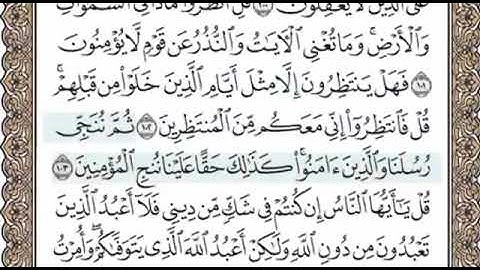 عَلَى ٱلَّذِينَ لَا يَعْقِلُونَ ۝١٠٠ قُلِ ٱنظُرُوا۟ مَاذَا فِى ٱلسَّمَٰوَٰتِ
وَٱلْأَرْضِ ۚ وَمَا تُغْنِى ٱلْءَايَٰتُ وَٱلنُّذُرُ عَن قَوْمٍ لَّا يُؤْمِنُونَ
۝١٠١ فَهَلْ يَنتَظِرُونَ إِلَّا مِثْلَ أَيَّامِ ٱلَّذِينَ خَلَوْا۟ مِن قَبْلِهِمْ ۚ
قُلْ فَٱنتَظِرُوٓا۟ إِنِّى مَعَكُم مِّنَ ٱلْمُنتَظِرِينَ ۝١٠٢ ثُمَّ نُنَجِّى
رُسُلَنَا وَٱلَّذِينَ ءَامَنُوا۟ ۚ كَذَٰلِكَ حَقًّا عَلَيْنَا نُنجِ ٱلْمُؤْمِنِينَ ۝١٠٣
قُلْ يَٰٓأَيُّهَا ٱلنَّاسُ إِن كُنتُمْ فِى شَكٍّ مِّن دِينِى فَلَآ أَعْبُدُ ٱلَّذِينَ
تَعْبُدُونَ مِن دُونِ ٱللَّهِ وَلَٰكِنْ أَعْبُدُ ٱللَّهَ ٱلَّذِى يَتَوَفَّىٰكُمْ ۖ وَأُمِرْتُ